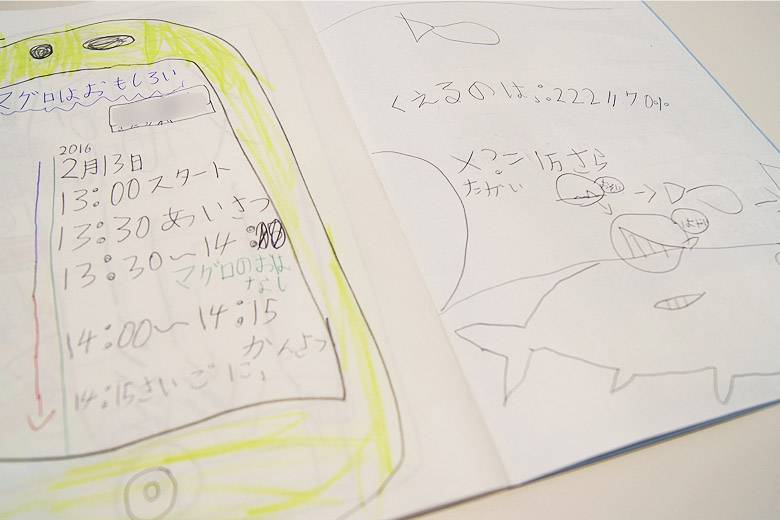 マグロはおもしろい
2016
2月13日
13:00スタート
13:30あいさつ
13:30〜14:00
マグロのおは
なし
14:00〜14:15
かんさつ
14:15さいごに、
くえるのは:222 170%
メ?=1万さら
たかい